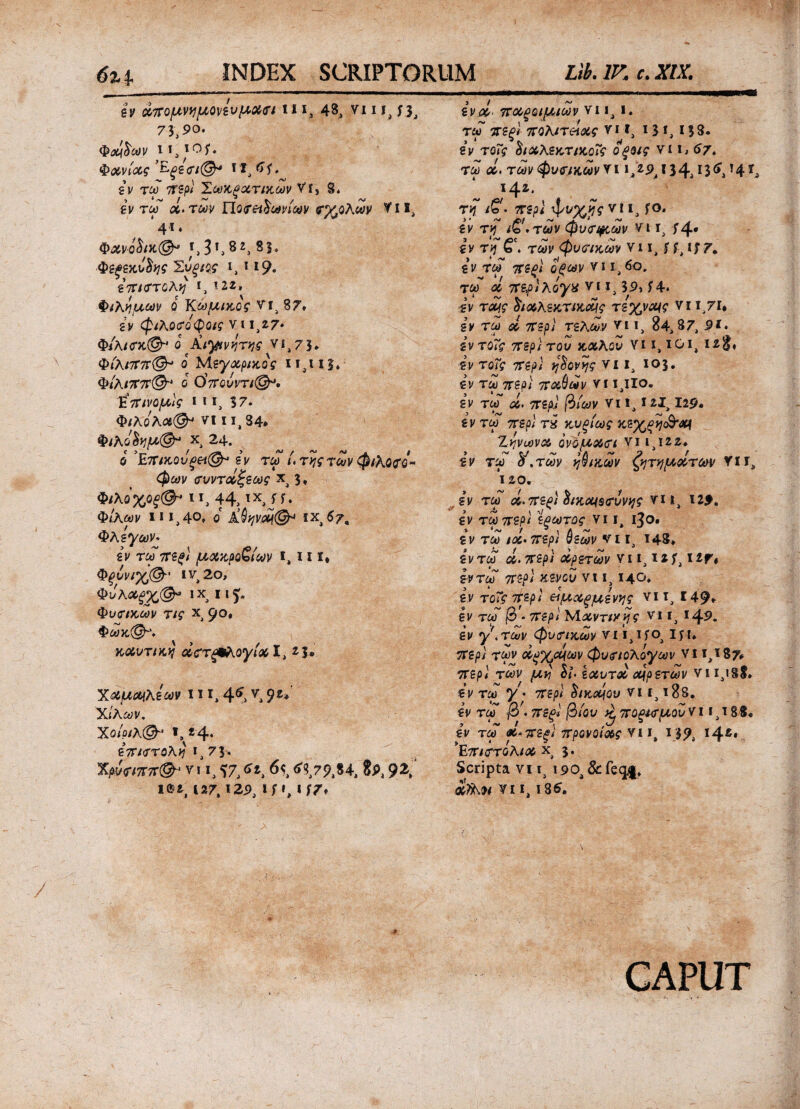 624 INDEX SCRIPTORUM Lib. IV. c. XIX.
ἐν ἀπομνημονεύμασι III, 48, VIII, 53,
73, 90.
Φαίδων II, 105.
Φανίας Ἐρέσι(ος) II, 65.
ἐν τῷ περὶ Σωκρατικῶν VI, 8.
ἐν τῷ α. τῶν Ποσειδωνίων σχολῶν VII,
41.
Φανόδικ(ος) I, 31, 82, 83.
Φερεκύδης Σύριος I, 119.
ἐπιστολὴ I, 122.
Φιλήμων ὁ Κωμικὸς VI, 87.
ἐν φιλοσόφοις VII, 27.
Φίλισκ(ος) ὁ Αἰγινήτης VI, 73.
Φίλιππ(ος) ὁ Μεγαρικὸς II, 113.
Φίλιππ(ος) ὁ Ὀπούντι(ος).
Ἐπινομὶς III, 37.
Φιλόλα(ος) VIII, 84.
Φιλόδημ(ος) X, 24.
ὁ Ἐπικούρει(ος) ἐν τῷ ί. τῆς τῶν φιλοσό-
φων συντάξεως X, 3.
Φιλόχορ(ος) II, 44, IX, 55.
Φίλων III, 40. ὁ Ἀθηναῖ(ος) IX, 67.
Φλέγων.
ἐν τῷ περὶ μακροβίων I, 111.
Φρύνιχ(ος) IV, 20,
Φύλαρχ(ος) IX, 115.
Φυσικῶν τις X, 90.
Φῶκ(ος).
καυτικὴ ἀστρολογία I, 23.
Χαμαιλέων III, 46, V, 92.
Χίλων.
Χοίριλ(ος) I, 24.
ἐπιστολὴ I, 73.
Χρύσιππ(ος) VII, 57, 62, 65, 68, 79, 84, 89, 92,
102, 127, 129, 151, 157.
ἐν α. παροιμιῶν VII, 1.
τῷ περὶ πολιτείας VII, 131, 138.
ἐν τοῖς διαλεκτικοῖς ὅροις VII, 67.
τῷ α. τῶν φυσικῶν VII, 29, 134, 136, 141,
142.
τῇ ιβ. περὶ ψυχῆς VII, 50.
ἐν τῇ ιβ. τῶν φυσικῶν VII, 54.
ἐν τῇ β. τῶν φυσικῶν VII, 55, 157.
ἐν τῷ περὶ ὅρων VII, 60.
τῷ α περὶ λόγου VII, 39, 54.
ἐν ταῖς διαλεκτικαῖς τέχναις VII, 71.
ἐν τῷ α περὶ τελῶν VII, 84, 87, 91.
ἐν τοῖς περὶ τοῦ καλοῦ VII, 101, 128.
ἐν τοῖς περὶ ἡδονῆς VII, 103.
ἐν τῷ περὶ παθῶν VII, 110.
ἐν τῷ α. περὶ βίων VII, 121, 129.
ἐν τῷ περὶ τοῦ κυρίως κεχρῆσθαι
Ζήνωνα ὀνόμασι VII, 122.
ἐν τῷ δ. τῶν ἠθικῶν ζητημάτων VII,
120.
ἐν τῷ α. περὶ δικαιοσύνης VII, 129.
ἐν τῷ περὶ ἔρωτος VII, 130.
ἐν τῷ ια. περὶ θεῶν VII, 148.
ἐν τῷ α. περὶ ἀρετῶν VII, 125, 127.
ἐν τῷ περὶ κενοῦ VII, 140.
ἐν τοῖς περὶ εἱμαρμένης VII, 149.
ἐν τῷ β. περὶ Μαντικῆς VII, 149.
ἐν γ. τῶν φυσικῶν VII, 150, 151.
περὶ τῶν ἀρχαίων φυσιολόγων VII, 187.
περὶ τῶν μὴ δι' ἑαυτὰ αἱρετῶν VII, 188.
ἐν τῷ γ. περὶ δικαίου VII, 188.
ἐν τῷ β. περὶ βίου καὶ πορισμοῦ VII, 188.
ἐν τῷ α. περὶ προνοίας VII, 139, 142.
Ἐπιστόλια X, 3.
Scripta VII, 190, & seqq.
ἄλλ(ος) VII, 186.
CAPUT